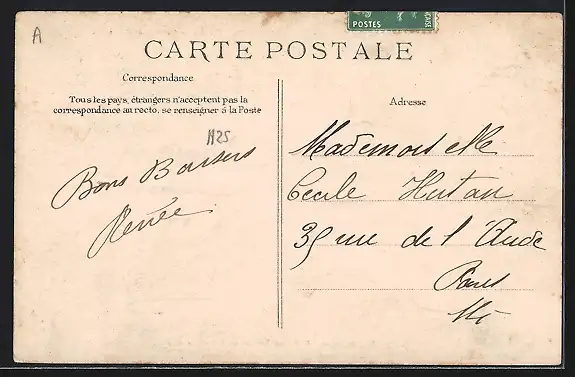 A
POSTES
CARTE POSTALE
Correspondance
Tous les pays étrangers n'acceptent pas la
correspondance au recto, se renseigner à la Poste
Adresse
Bons Baisers
Renée
Mademoiselle
Cecile Hutan
39 rue de l'Aude
Paris